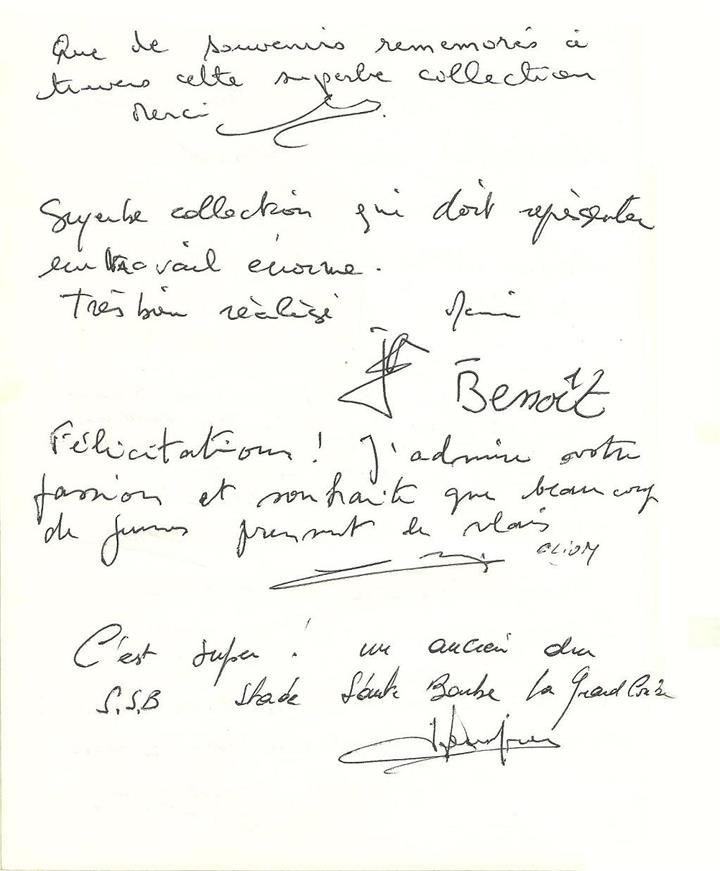 Que de souvenirs rememorés à
travers cette superbe collection
Merci
Superbe collection qui doit représenter
un travail énorme.
Très bien réalisé
Benoît
Félicitations ! J'admire votre
passion et souhaite que beaucoup
de jeunes prennent le relais
CLION
C'est super ! un ancien du
S.S.B Stade Sainte Barbe La Grand Combe